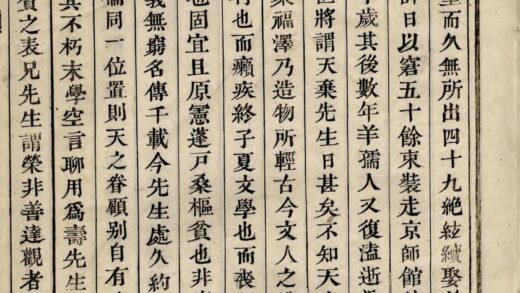 而久無所出四十九絶絃續娶
日以窘五十餘束裝走京師館
歲其後數年羊孺人又復溘逝
將謂天棄先生日甚矣不知天
福澤乃造物所輕古今文人之
也而癩疾終子夏文學也而喪
也固宜且原憲蓬戸桑樞貧也非
義無窮名傳千載今先生處久約
同一位置則天之眷顧别自有
其不朽末學空言聊用爲壽先生
之表兄先生謂榮非善達觀者